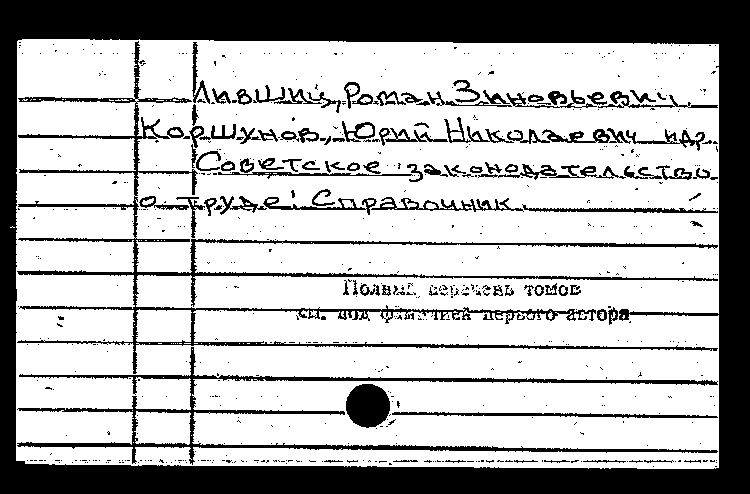 Лившиц, Роман Зиновьевич.
Коршунов, Юрий Николаевич и др.
Советское законодательство
о труде: Справочник.
Полный перечень томов
см. под фамилией первого автора